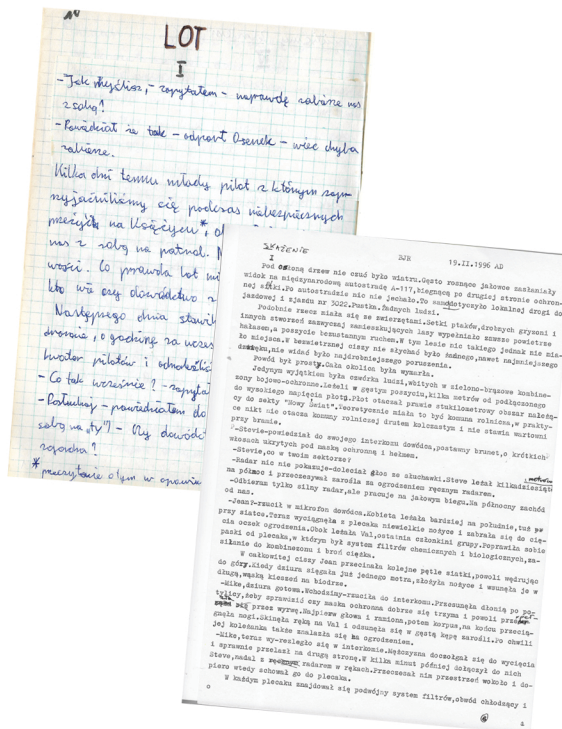 LOT
I
- Jak myślisz, - zapytałem - naprawdę zabierze nas
z sobą?
- Powiedział że tak - odparł Osenek - więc chyba
zabierze.
Kilka dni temu młody pilot z którym zap-
rzyjaźniliśmy się podczas niebezpiecznych
przeżyć na Księżycu*, o
nas z sobą na patrol. N
wości. Co prawda lot mi
kto wie czy dowództwo z
Następnego dnia stawil
dronie, o godzinę za wcześ
kwater pilotów i
- Co tak wcześnie? - zapyta
- Posłuchaj - powiedziałem do
sobą na "ty") - Czy dowódz
zgodna?
* przeczytacie o tym w opowia
SKAŻENIE
I
DJH
19.II.1996 AD
Pod osłoną drzew nie czuć było wiatru.Gęsto rosnące jałowce zasłaniały
widok na międzynarodową autostradę A-117,biegnącą po drugiej stronie ochron-
nej siatki.Po autostradzie nic nie jechało.To samo dotyczyło lokalnej drogi do
jazdowej i zjazdu nr 3022.Pustka.Żadnych ludzi.
Podobnie rzecz miała się ze zwierzętami.Setki ptaków,drobnych gryzoni i
innych stworzeń zazwyczaj zamieszkujących lasy wypełniało zawsze powietrze
hałasem,a poszycie bezustannym ruchem.W tym lesie nic takiego jednak nie mia-
ło miejsca.W bezwietrznej ciszy nie słychać było żadnego,nawet najmniejszego
dźwięku,nie widać było najdrobniejszego poruszenia.
Powód był prosty.Cała okolica była wymarła.
Jedynym wyjątkiem była czwórka ludzi,wbitych w zielono-brązowe kombine-
zony bojowo-ochronne.Leżeli w gęstym poszyciu,kilka metrów od podłączonego
do wysokiego napięcia płotu.Płot otaczał prawie stukilometrowy obszar należą-
cy do sekty "Nowy Świat".Teoretycznie miała to być komuna rolnicza,w prakty-
ce nikt nie otacza komuny rolniczej drutem kolczastym i nie stawia wartowni
przy bramie.
-Stevie-powiedział do swojego interkomu dowódca,postawny brunet,o krótkich
włosach ukrytych pod maską ochronną i hełmem.
-Stevie,co w twoim sektorze?
-Radar nic nie pokazuje-doleciał głos ze słuchawki.Steve leżał kilkadziesiąt
metrów
na północ i przeczesywał zarośla za ogrodzeniem ręcznym radarem.
-Odbieram tylko silny radar,ale pracuje na jałowym biegu.Na północny zachód
od nas.
-Jean?-rzucił w mikrofon dowódca.Kobieta leżała bardziej na południe,tuż
przy siatce.Teraz wyciągnęła z plecaka niewielkie nożyce i zabrała się do cię-
cia oczek ogrodzenia.Obok leżała Val,ostatnia członkini grupy.Poprawiła sobie
paski od plecaka,w którym był system filtrów chemicznych i biologicznych,za-
silanie do kombinezonu i broń ciężka.
W całkowitej ciszy Jean przecinała kolejne pętle siatki,powoli wędrując
do góry.Kiedy dziura sięgała już jednego metra,złożyła nożyce i wsunęła je w
długą,wąską kieszeń na biodrze.
-Mike,dziura gotowa.Wchodzimy-rzuciła do interkomu.Przesunęła dłonią po po-
tylicy,żeby sprawdzić czy maska ochronna dobrze się trzyma i powoli
się przez wyrwę.Najpierw głowa i ramiona,potem korpus,na końcu przecią-
gnęła nogi.Skinęła ręką na Val i odsunęła się w gęstą kępę zarośli.Po chwili
jej koleżanka także znalazła się za ogrodzeniem.
-Mike,teraz wy-rozległo się w interkomie.Mężczyzna doczołgał się do wycięcia
i sprawnie przelazł na drugą stronę.W kilka minut później dołączył do nich
Steve,nadal z radarem w rękach.Przeczesał nim przestrzeń wokoło i do-
piero wtedy schował go do plecaka.
W każdym plecaku znajdował się podwójny system filtrów,obwód chłodzący i